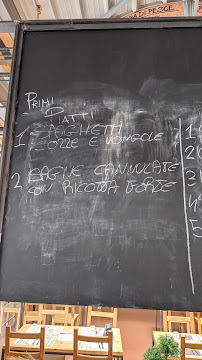 DI PESCE
- PRIMI
PIATTI
1 - SPAGHETTI
COZZE E VONGOLE
2 SAGNE CANNULATE
CON RICOTTA FORTE
1
2
3
4
5